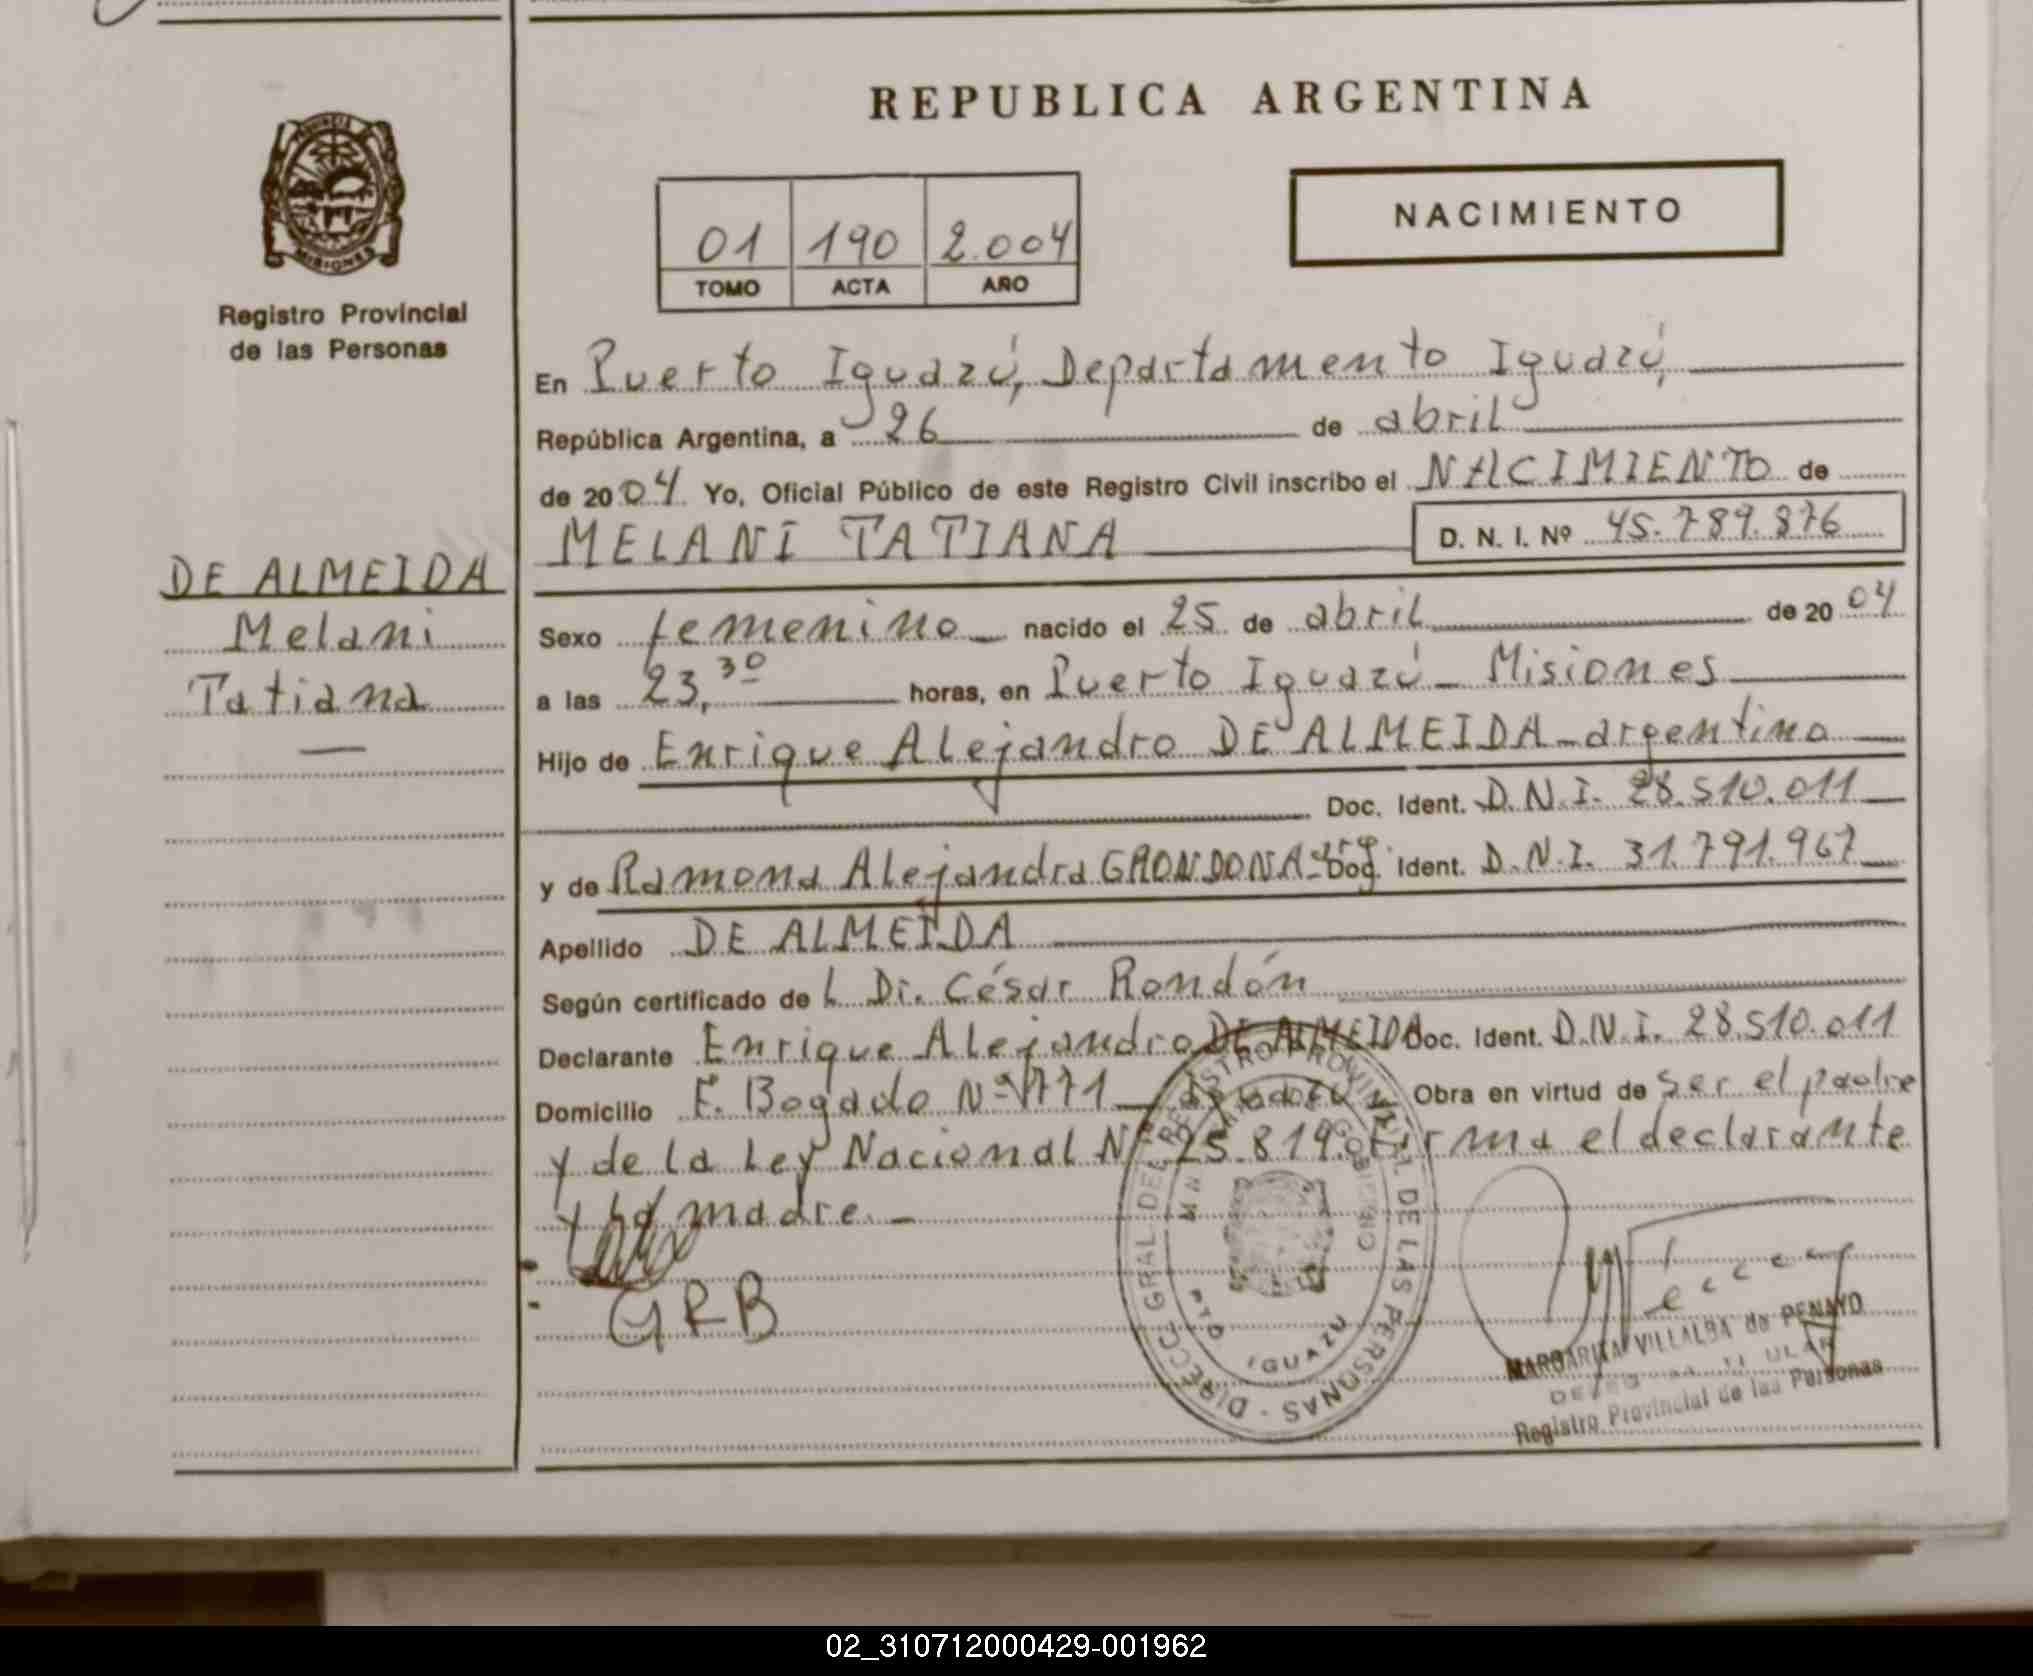 REPUBLICA ARGENTINA
PROVINCIA DE
MISIONES
Registro Provincial
de las Personas
NACIMIENTO
01 190 2.004
TOMO ACTA AÑO
En Puerto Iguazú, Departamento Iguazú,
República Argentina, a 26 de abril
de 2004 Yo, Oficial Público de este Registro Civil inscribo el NACIMIENTO de
MELANI TATIANA D. N. I. Nº 45.789.876
DE ALMEIDA
Melani
Tatiana
Sexo femenino nacido el 25 de abril de 2004
a las 23,30 horas, en Puerto Iguazú - Misiones
Hijo de Enrique Alejandro DE ALMEIDA - argentino
Doc. Ident. D.N.I. 28.510.011
y de Ramona Alejandra GRONDONA - arg. Doc. Ident. D.N.I. 31.791.967
Apellido DE ALMEIDA
Según certificado de L. Dr. César Rondón
Declarante Enrique Alejandro DE ALMEIDA Doc. Ident. D.N.I. 28.510.011
Domicilio F. Bogado Nº 1771 - Obra en virtud de ser el padre
y de la Ley Nacional Nº 25.819. Firma el declarante
y la madre. -
GRB
DIRECC. GRAL. DEL REGISTRO PROVINCIAL DE LAS PERSONAS
PTO. IGUAZU
MARGARITA VILLALBA de PENAYO
Registro Provincial de las Personas
02_310712000429-001962